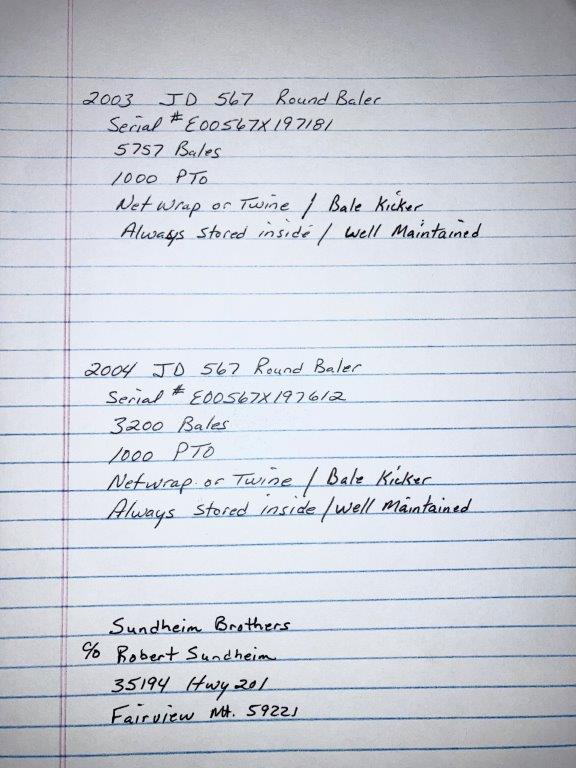 2003 JD 567 Round Baler
Serial # E00567X197181
5757 Bales
1000 PTO
Net Wrap or Twine / Bale Kicker
Always Stored inside / Well Maintained
2004 JD 567 Round Baler
Serial # E00567X197612
3200 Bales
1000 PTO
Netwrap or Twine / Bale Kicker
Always Stored inside / Well Maintained
Sundheim Brothers
% Robert Sundheim
35194 Hwy 201
Fairview Mt. 59221